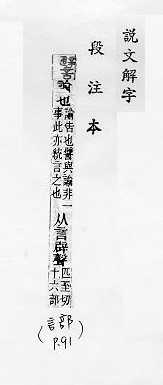 說文解字
段注本
譬
諭也
諭告也譬與諭非一
事此亦統言之也
从言辟聲
匹至切
十六部
(言部
P.91)